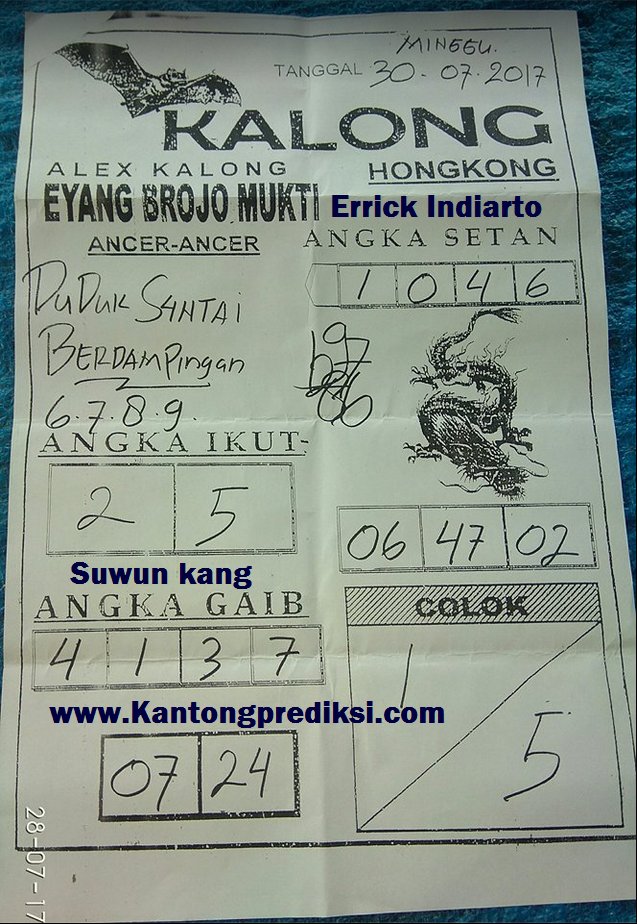 MINGGU.
TANGGAL 30-07-2017
KALONG
ALEX KALONG HONGKONG
EYANG BROJO MUKTI Errick Indiarto
ANCER-ANCER ANGKA SETAN
1 0 4 6
DUDUK SANTAI
BERDAMPINGAN
6.7.8.9.
ANGKA IKUT-
2 5
06 47 02
Suwun kang
ANGKA GAIB
COLOK
4 1 3 7
1
5
www.Kantongprediksi.com
07 24
28-07-17